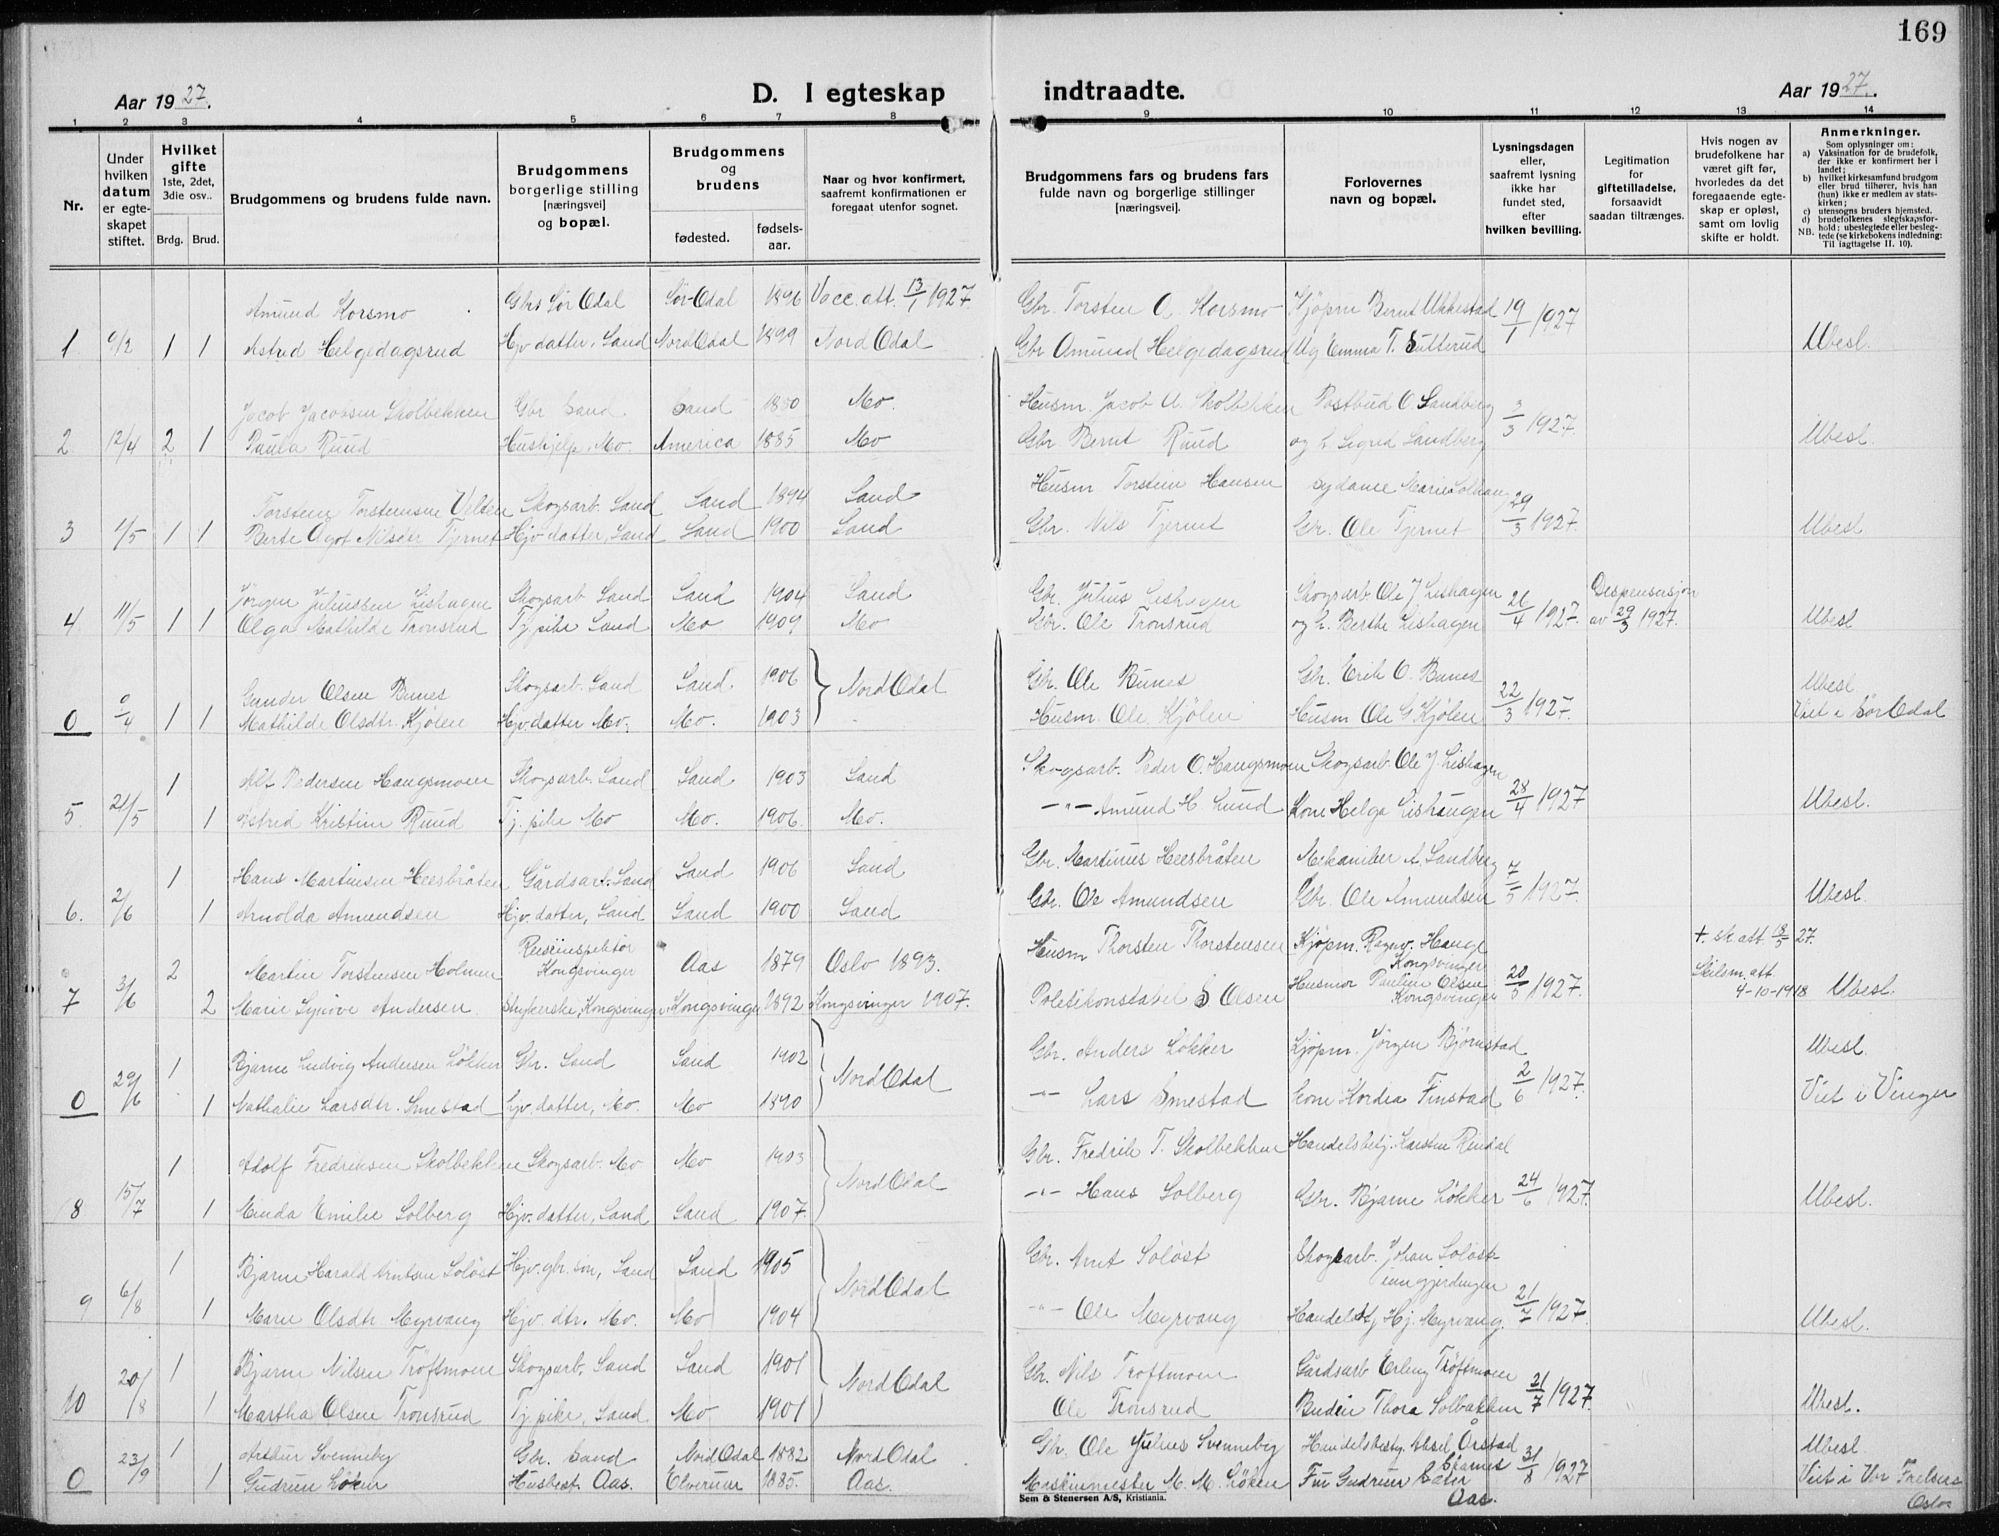 169
Aar 1927.
D. I egteskap indtraadte.
Aar 1927.
1 2 3 4 5 6 7 8 9 10 11 12 13 14
Nr.
Under hvilken datum er egteskapet stiftet.
Hvilket gifte 1ste, 2det, 3die osv..
Brdg. Brud.
Brudgommens og brudens fulde navn.
Brudgommens borgerlige stilling [næringsvei] og bopæl.
Brudgommens og brudens
fødested. fødselsaar.
Naar og hvor konfirmert, saafremt konfirmationen er foregaat utenfor sognet.
Brudgommens fars og brudens fars fulde navn og borgerlige stillinger [næringsvei].
Forlovernes navn og bopæl.
Lysningsdagen eller, saafremt lysning ikke har fundet sted, efter hvilken bevilling.
Legitimation for giftetilladelse, forsaavidt saadan tiltrænges.
Hvis nogen av brudefolkene har været gift før, hvorledes da det foregaaende egteskap er opløst, samt om lovlig skifte er holdt.
Anmerkninger.
Som oplysninger om:
a) Vaksination for de brudefolk, der ikke er konfirmert her i landet;
b) hvilket kirkesamfund brudgom eller brud tilhører, hvis han (hun) ikke er medlem av statskirken;
c) utensogns bruders hjemsted.
d) brudefolkenes slegtskapsforhold: ubeslegtede eller beslegtede (se kirkebokens indledning:
NB. Til iagttagelse II. 10).
Amund Korsmo Gbr Sør Odal Sør-Odal 1896 Vacc. att. 13/1 1927 Gbr. Torsten A. Korsmo Kjøpm Bernt Ukkestad 19/1 1927
1 1 1 Astrid Helgedagsrud Hjv datter, Sand Nord Odal 1899 Nord Odal Gbr Amund Helgedagsrud Ug Emma T. Sutterud Ubesl.
Jacob Jacobsen Skolbekken Gbr Sand Sand Mo. Husm. Jacob A. Skolbekken Postbud O. Sandberg 3/3 1927
2 12/4 2 1 Paula Ruud Hushjelp, Mo. America 1885 Mo Gbr Bernt Ruud og h. Sigrid Sandberg Ubesl.
Torstein Torsteinsen Velten Skogsarb. Sand Sand 1894 Sand Husm Torstein Hansen sydame Marie Solhaug 29/3 1927.
3 1/5 1 1 Berte Agot Nilsdtr Tjernet Hjv datter, Sand Sand 1900 Sand Gbr. Nils Tjernet Gbr. Ole Tjernet Ubesl
Jørgen Juliussen Lishagen Skogsarb Sand Sand 1904 Sand Gbr. Julius Lishagen Skogsarb Ole J Lishagen 26/4 1927. Despensasjon
4 11/5 1 1 Olga Mathilde Tronsrud Tj. pike Sand Mo 1909 Mo Gbr. Ole Tronsrud og h. Berthe Lishagen av 29/3 1927. Ubesl
Gunder Olsen Bunes Skogsarb. Sand Sand. 1906 Nord Odal Gbr. Ole Bunes Gbr. Erik O. Bunes 22/3 1927. Ubesl
0 9/4 1 1 Mathilde Olsdtr. Kjølen Hjv. datter Mo. Mo. 1903 Husm. Ole Kjølen Husm Ole G Kjølen Viet i Sør Odal
1 Alf Pedersen Haugsmoen Skogsarb. Sand Sand 1903 Sand Skogsarb. Peder O. Haugsmoen Skogsarb Ole J Lishagen 28/4 1927
5 21/5 1 Astrid Kristine Ruud Tj. pike Mo Mo. 1906. Mo. —"— Amund H. Lund Kone Helga Lishaugen Ubesl.
1 Hans Martinsen Heesbråten Gårdsarb. Sand Sand 1906 Sand Gbr. Martinus Heesbråten Mekaniker A. Sandberg 7/5 1927.
6. 2/6 1 Arnolda Amundsen Hjv. datter, Sand Sand 1900 Sand Gbr. Ole Amundsen Gbr. Ole Amundsen Ubesl.
2 Martin Torstensen Holmen Kongsvinger Aas 1879 Oslo 1893. Husm Thorsten Thorstensen Kjøpm. Ragnv. Hauge Kongsvinger 20/5 1927. + sk. att 18/5 27.
7 3/6 2 Marie Synøve Andersen. Strykerske, Kongsvinger Kongsvinger 1892 Kongsvinger 1907. Politikonstabel S Olsen Husmor Pauline Olsen Kongsvinger Skilsm. att 4-10-1918 Ubesl.
1 Bjarne Ludvig Andersen Løkker Gbr. Sand Sand 1902 Nord Odal Gbr. Anders Løkker Kjøpm. Jörgen Björnstad 2/6 1927. Ubesl.
0 29/6 1 Nathalie Larsdtr. Smestad hjv. datter, Mo. Mo 1890 —"— Lars Smestad kone Hordia Finstad Viet i Vinger
1 Adolf Fredriksen Skolbekken Skogsarb. Mo Mo 1903 Nord Odal Gbr. Fredrik T. Skolbekken Handelsbetj. Karsten Rendal 24/6 1927.
8 15/7 1 Minda Emilie Solberg Hjv. datter, Sand Sand 1907. —"— Hans Solberg Gbr. Bjarne Løkker Ubesl.
1 Bjarne Harald Arntsen Soløst Hjv. gbr. søn, Sand Sand 1905 Nord Odal Gbr. Arnt Soløst Skogsarb. Johan Soløst 21/7 1927.
9 6/8 1 Marie Olsdtr Myrvang Hjv. dtr. Mo. Mo 1904 —"— Ole Myrvang Handelsbtj Hj. Myrvang. Ubesl.
1 Bjarne Nilsen Tröftmoen Skogsarb. Sand Sand 1901 Nord Odal Gbr. Nils Tröftmoen Gårdsarb Erling Tröftmoen 21/7 1927.
10 20/8 1 Martha Olsen Tronsrud Tj. pike, Sand Mo 1901 Ole Tronsrud Budein Thora Solbakken Ubesl.
1 Arthur Svenneby Gbr. Sand Nord Odal 1882 Nord Odal Gbr. Ole Julius Svenneby Handelsbestyr. Aksel Årstad 31/8 1927 Ubesl.
0 23/9 1 Gudrun Løken Husbest. Aas. Elverum 1885. Aas. Maskinmester M. M. Løken Fru Gudrun Aas. Viet i Vor Frelsers Oslo
Sem & Stenersen A/S, Kristiania.